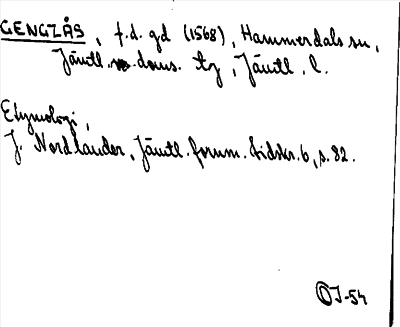 GENGZÅS, f.d. gd (1568), Hammerdals sn,
Jämtl. doms. tg, Jämtl. l.
Etymologi,
J. Nordlander, Jämtl. fornm. tidskr. 6, s. 82.
OJ-54